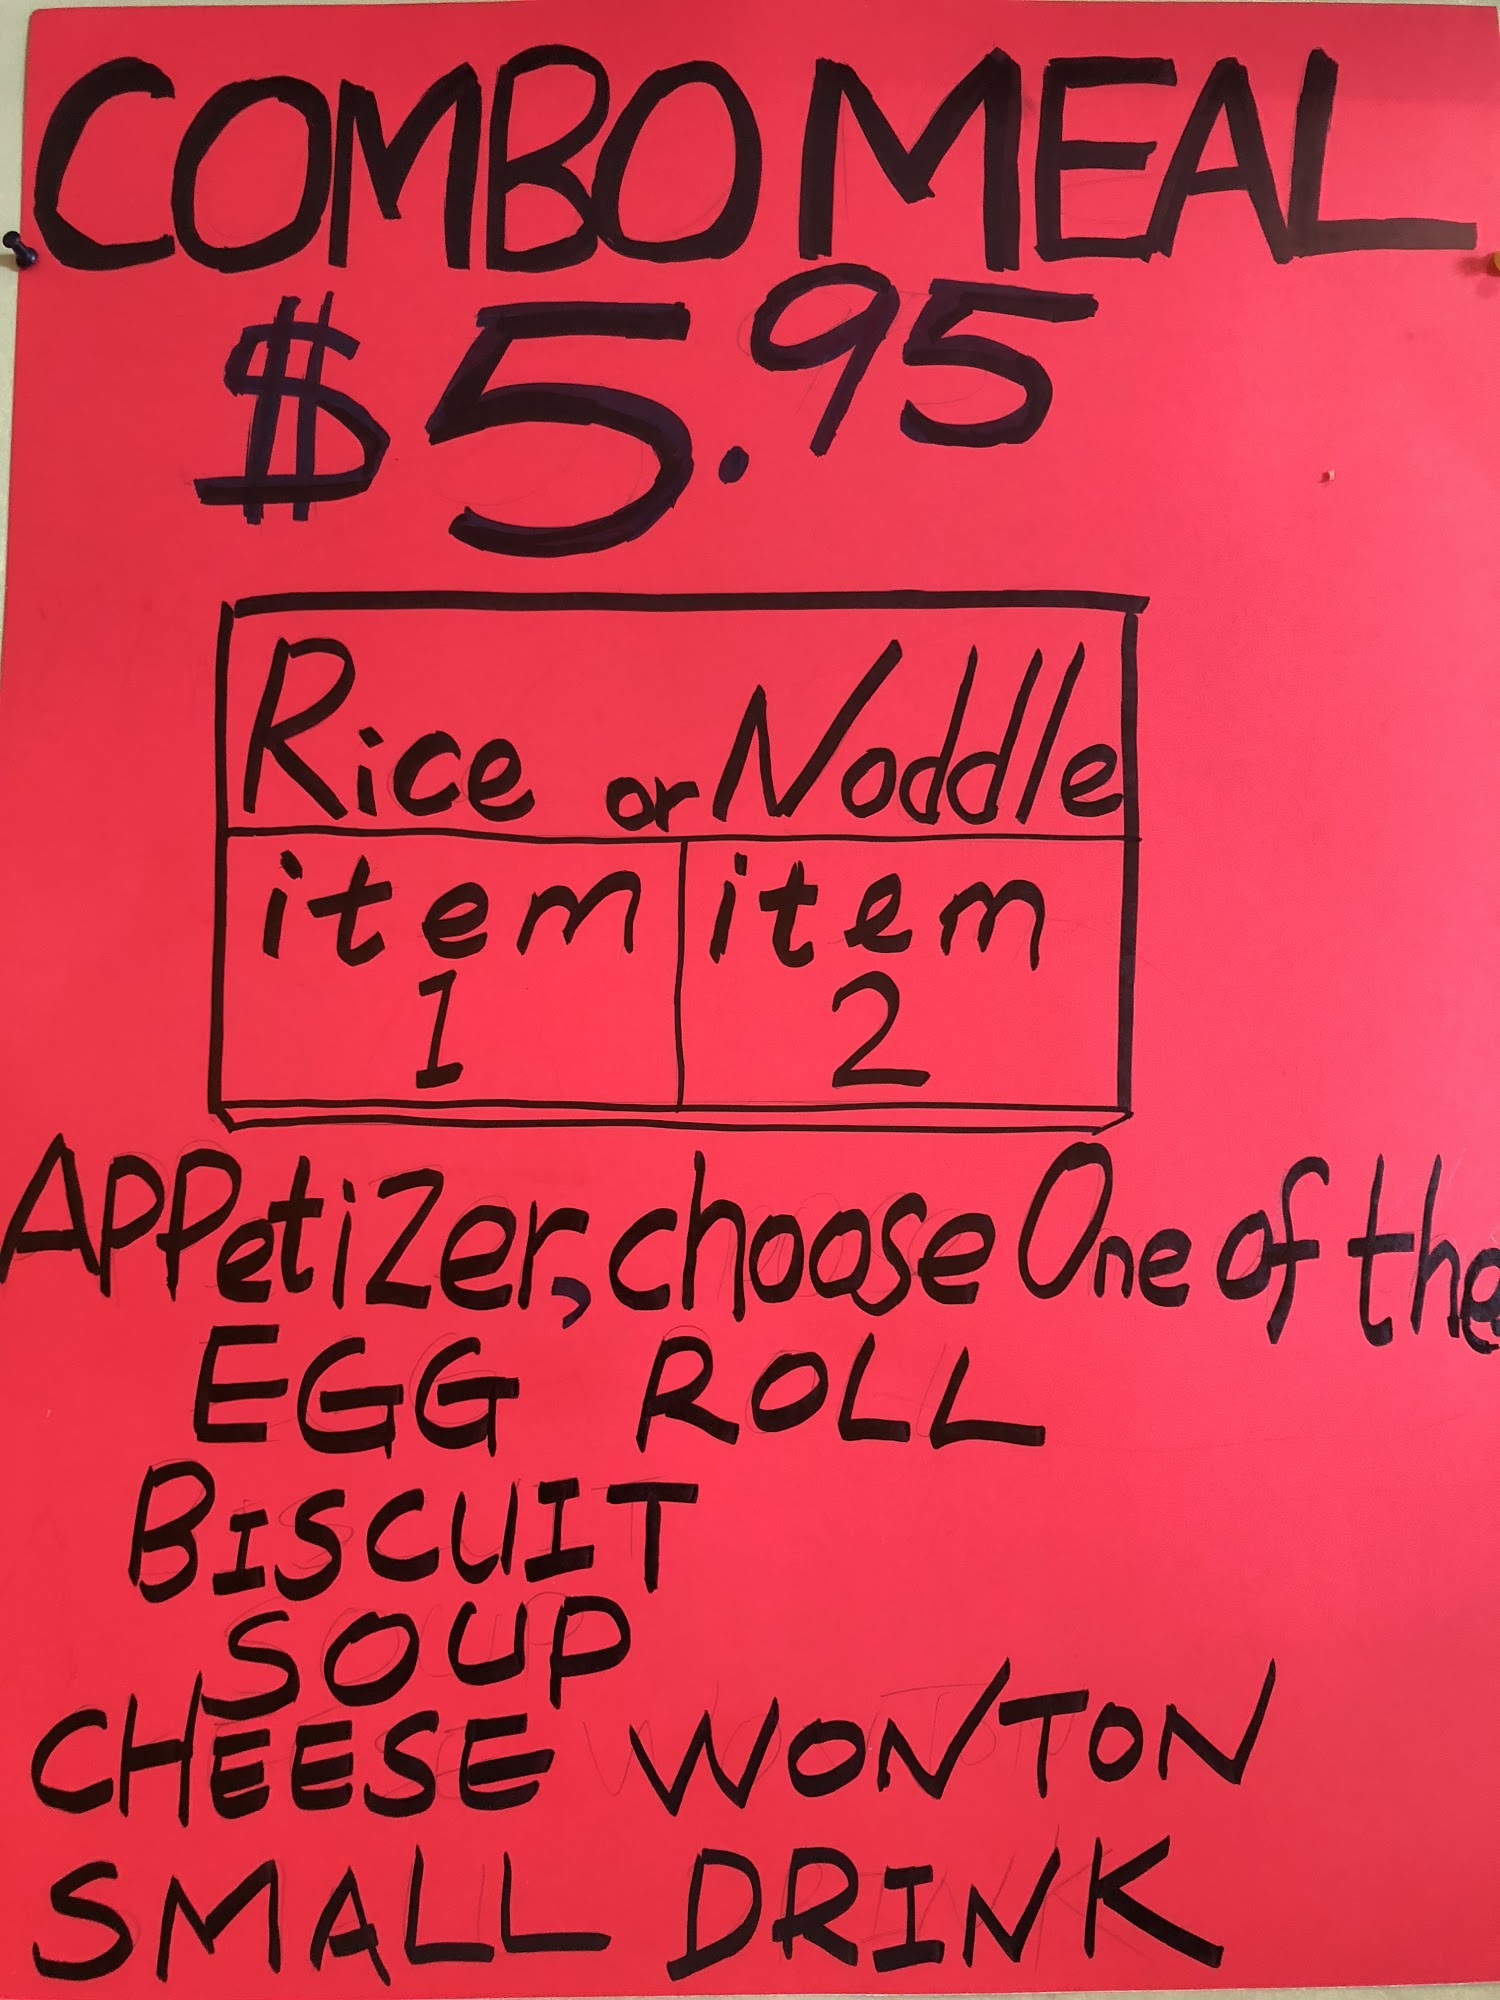 COMBO MEAL
$5.95
Rice or Noddle
item item
1 2
Appetizer, choose One of the
EGG ROLL
BISCUIT
SOUP
CHEESE WONTON
SMALL DRINK